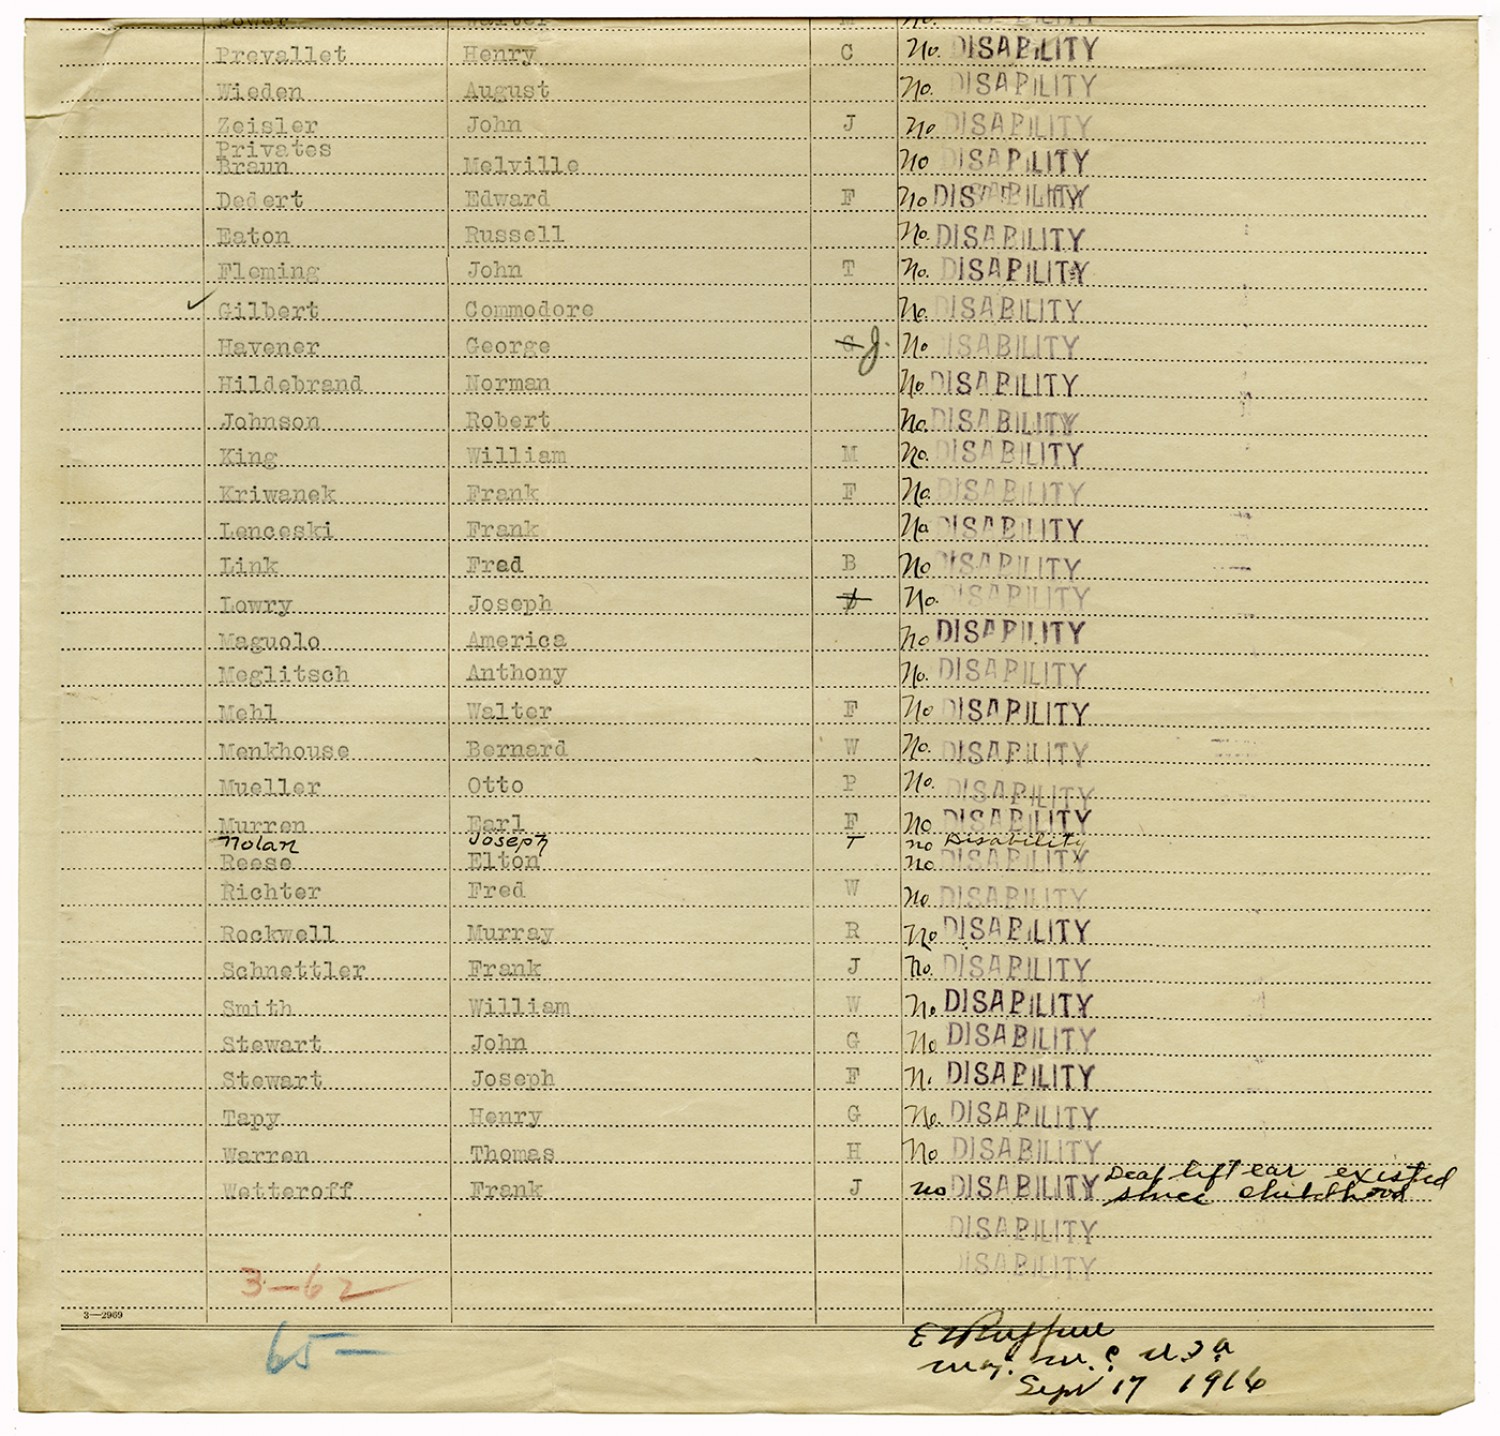 Power Walter M No.
Prevallet Henry C No. DISABILITY
Wieden August No. DISABILITY
Zeisler John J No DISABILITY
Privates
Braun Melville No DISABILITY
Dedert Edward F No DISABILITY
Eaton Russell No. DISABILITY
Fleming John T No. DISABILITY
✓ Gilbert Commodore No. DISABILITY
Havener George G J. No DISABILITY
Hildebrand Norman No DISABILITY
Johnson Robert No. DISABILITY
King William M No. DISABILITY
Kriwanek Frank F No. DISABILITY
Lenceski Frank No DISABILITY
Link Fred B No DISABILITY
Lowry Joseph No. DISABILITY
Maguolo America No DISABILITY
Meglitsch Anthony No. DISABILITY
Mehl Walter F No DISABILITY
Menkhouse Bernard W No. DISABILITY
Mueller Otto P No. DISABILITY
Murren Earl F No DISABILITY
Nolan Joseph T no Disability
Reese Elton no DISABILITY
Richter Fred W No DISABILITY
Rockwell Murray R No DISABILITY
Schnettler Frank J No. DISABILITY
Smith William W No DISABILITY
Stewart John G No DISABILITY
Stewart Joseph F N. DISABILITY
Tapy Henry G No. DISABILITY
Warren Thomas H No DISABILITY
Wetteroff Frank J no DISABILITY Deaf left ear existed
since childhood
DISABILITY
DISABILITY
3-62
3—2969
65-
Maj. M.C. U.S.A.
Sept 17 1916